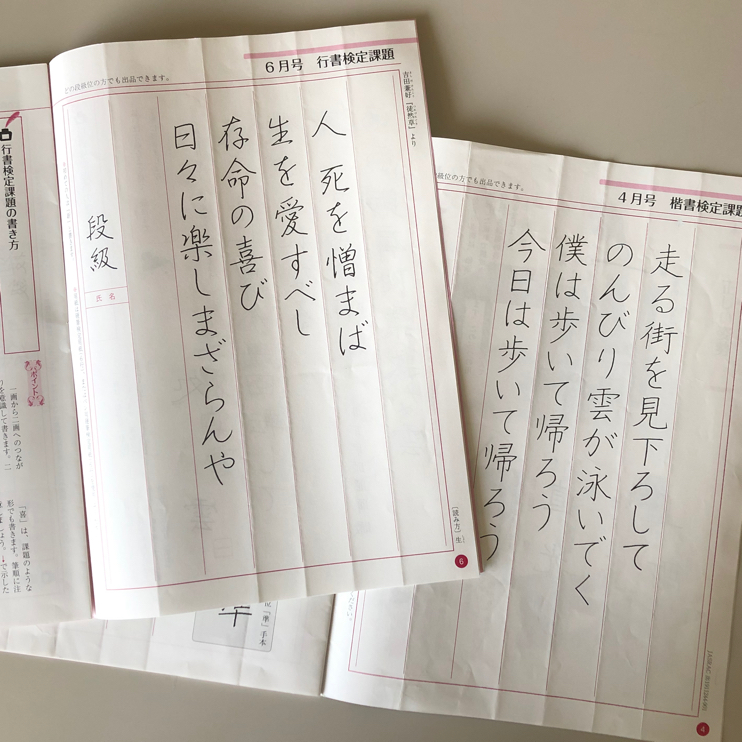 6月号 行書検定課題
どの段級位の方でも出品できます。
吉田兼好『徒然草』より
人 死を憎まば
生を愛すべし
存命の喜び
日々に楽しまざらんや
段級
氏名
〔読み方〕生
6
行書検定課題の書き方
ポイント
一画から二画へのつなが
りを意識して書きます。二
「喜」は、課題のような
形でも書きます。筆順に注
4月号 楷書検定課題
級位の方でも出品できます。
走る街を見下ろして
のんびり雲が泳いでく
僕は歩いて帰ろう
今日は歩いて帰ろう
4
手本